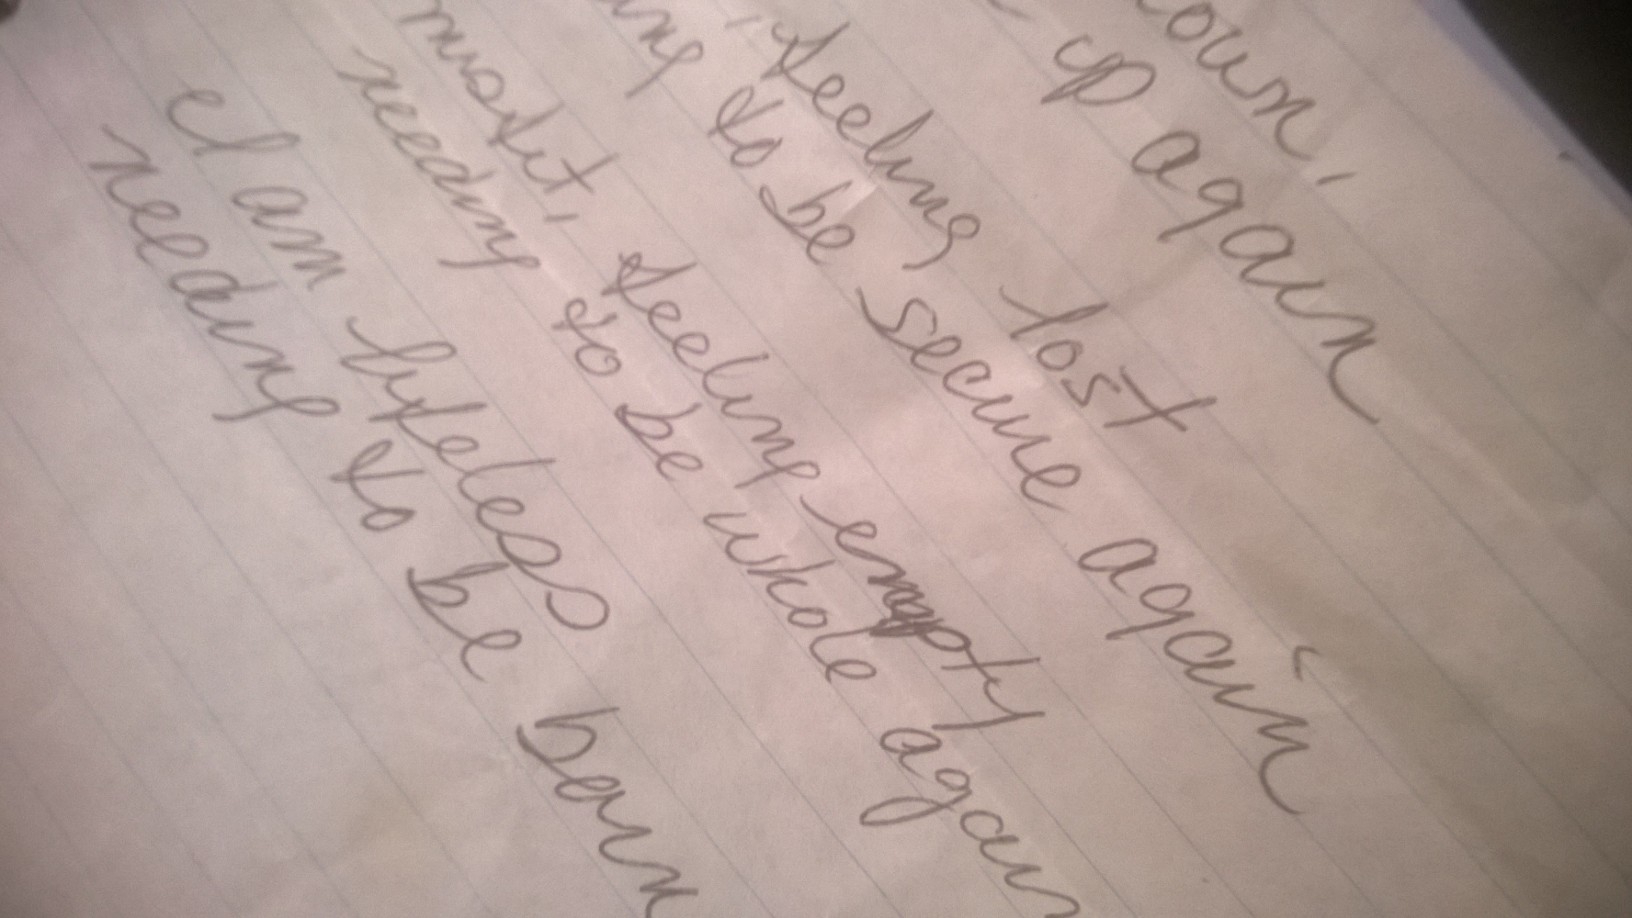 up again
, feeling lost
to be secure again
feeling empty
needing to be whole again
I am lifeless
needing to be born